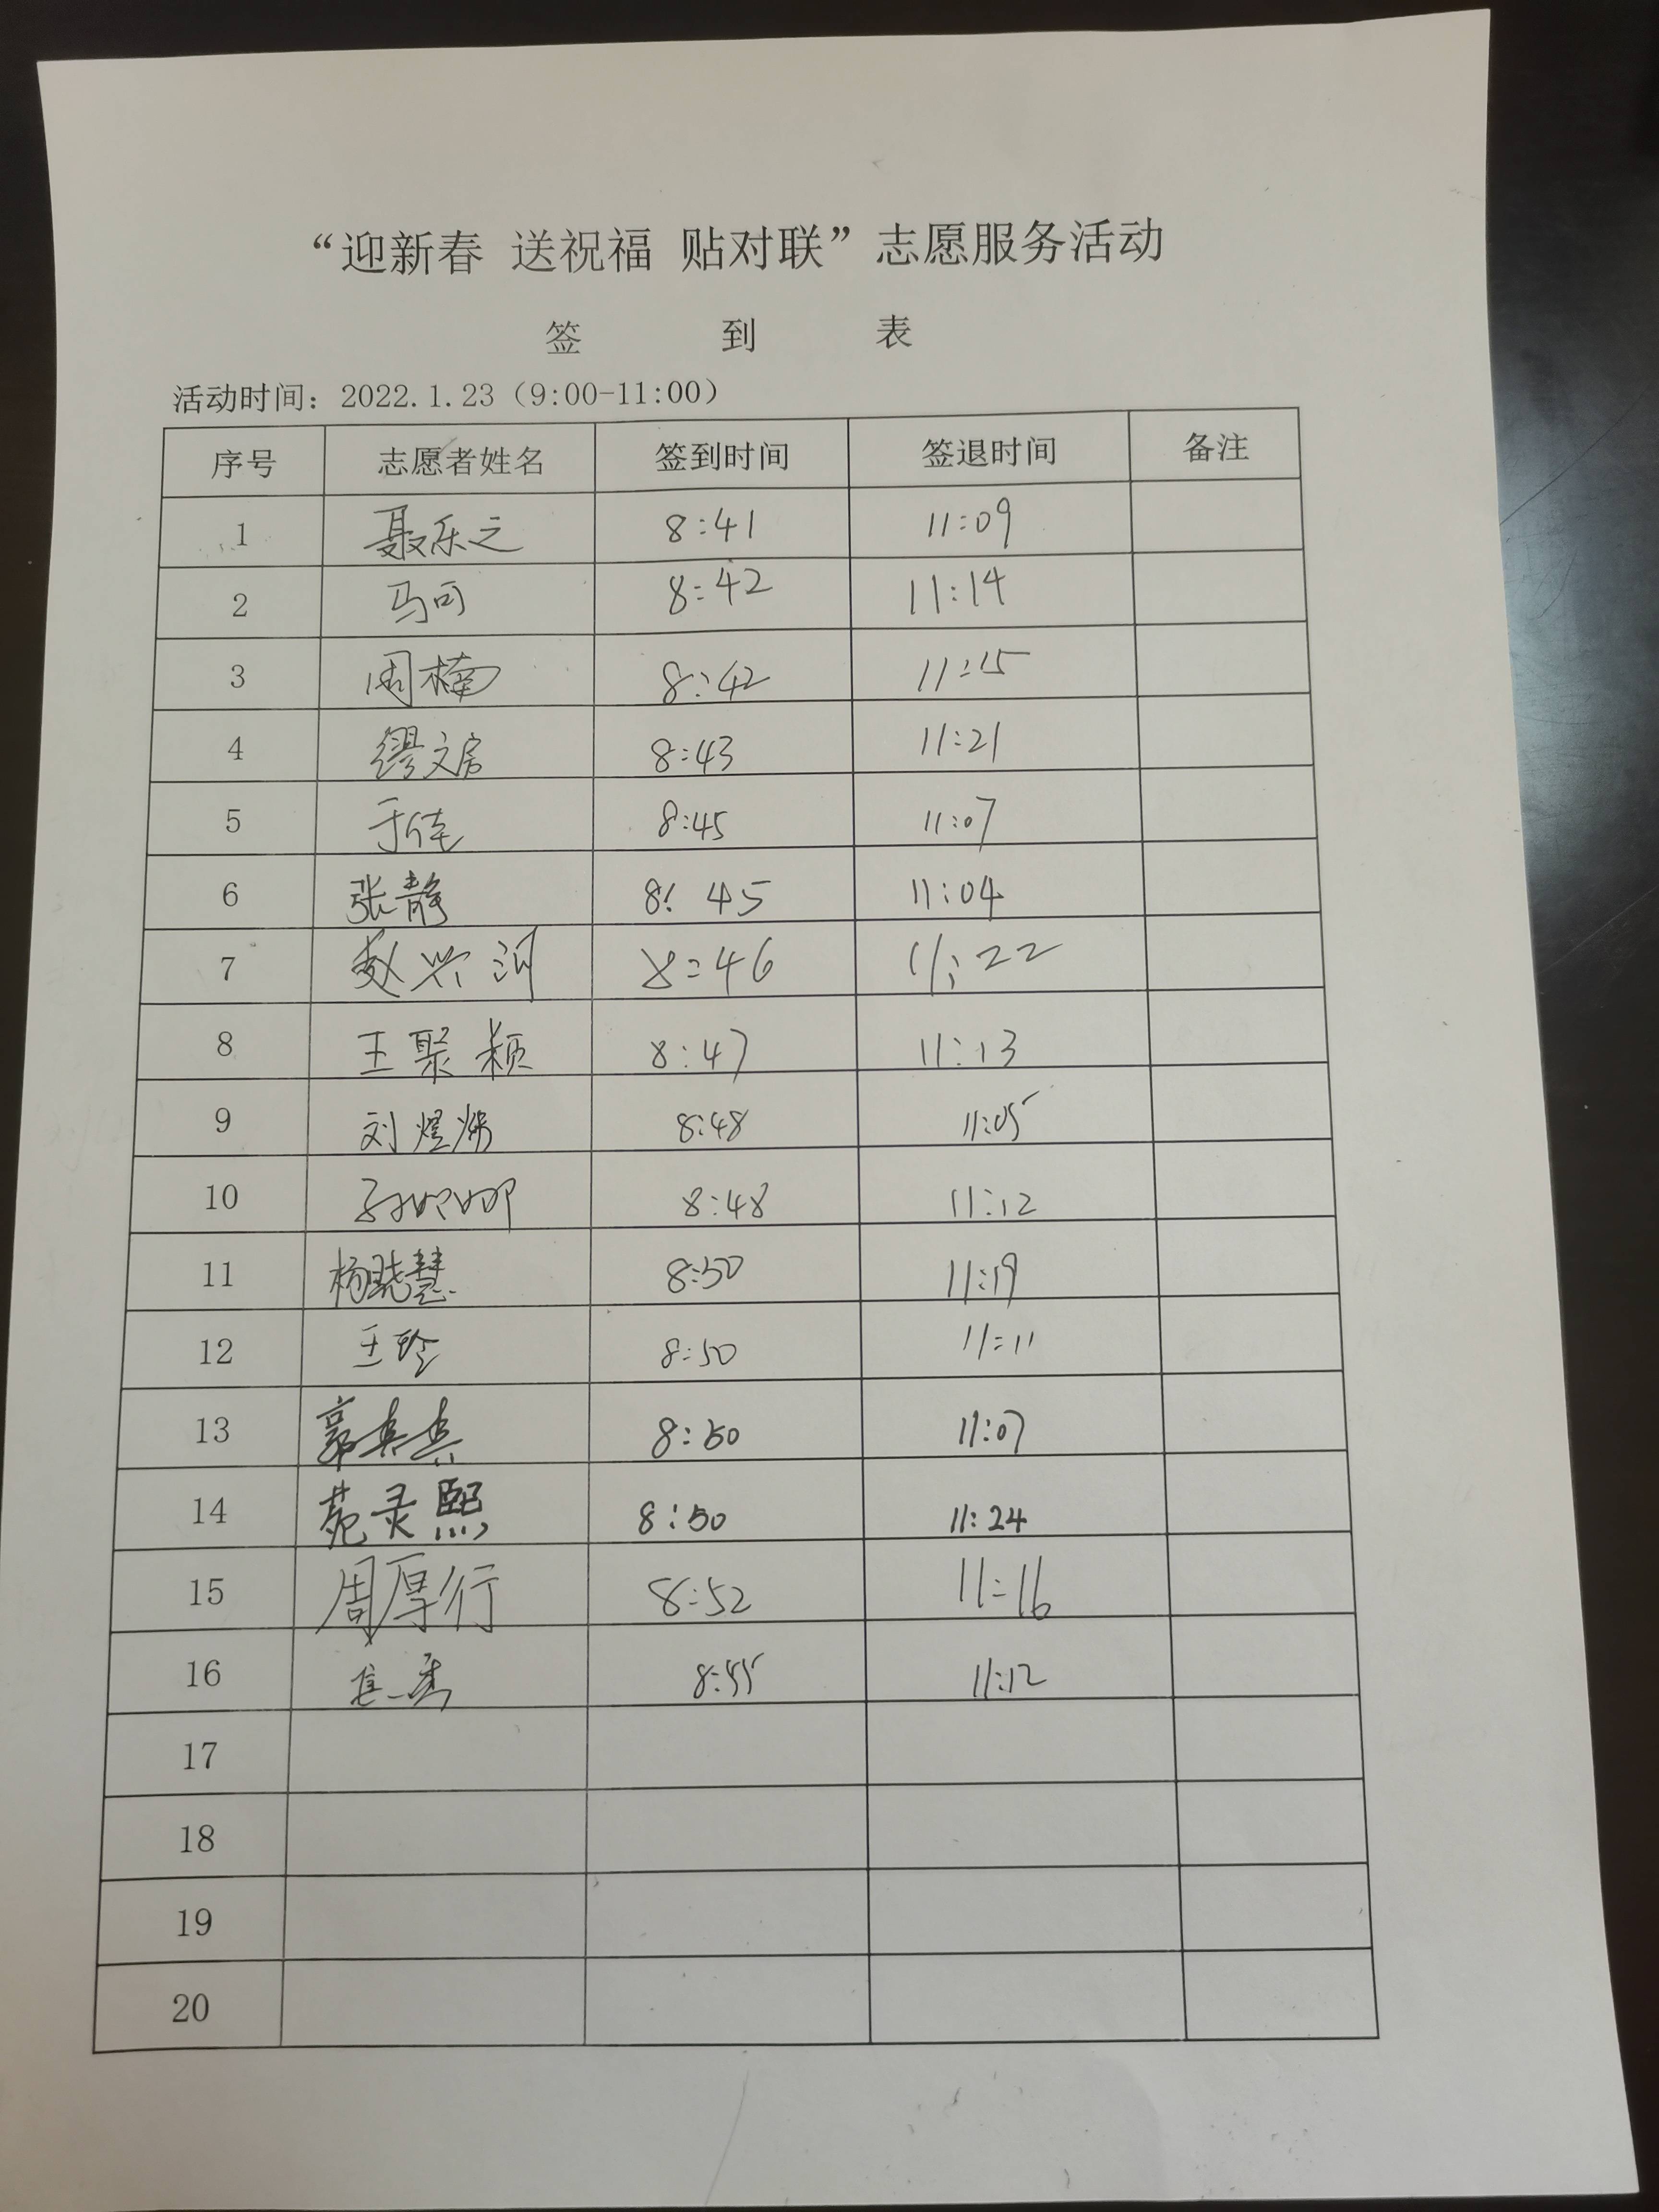 “迎新春 送祝福 贴对联”志愿服务活动
签 到 表
活动时间：2022.1.23（9:00-11:00）
序号 志愿者姓名 签到时间 签退时间 备注
1 聂乐之 8:41 11:09
2 马可 8:42 11:14
3 周楠 8:42 11:15
4 缪文房 8:43 11:21
5 于佳 8:45 11:07
6 张静 8:45 11:04
7 赵兴河 8:46 11:22
8 王聚颖 8:47 11:13
9 刘煜 8:48 11:05
10 孙娜娜 8:48 11:12
11 杨晓慧 8:50 11:19
12 王玲 8:50 11:11
13 郭真真 8:50 11:07
14 苑灵熙 8:50 11:24
15 周厚行 8:52 11:16
16 8:55 11:12
17
18
19
20